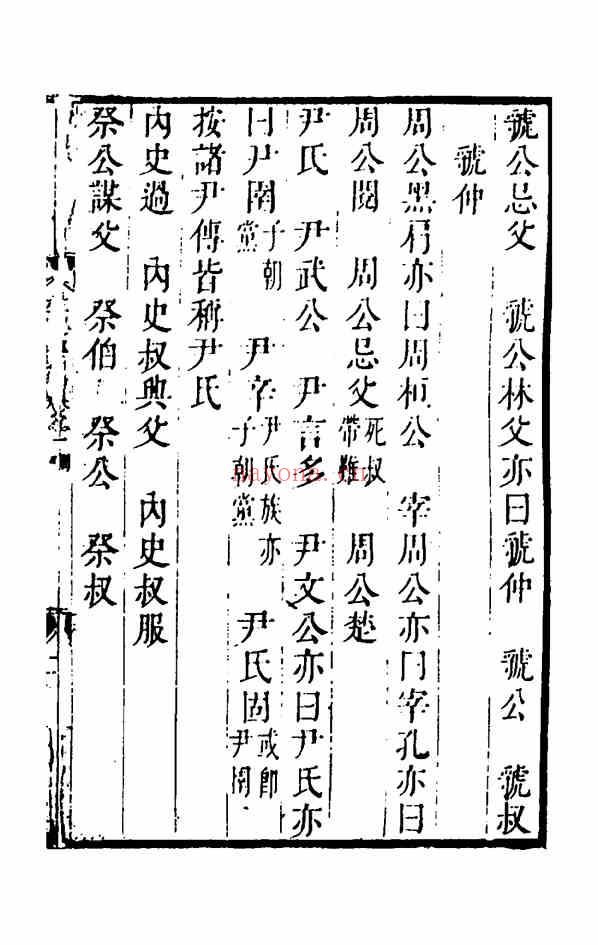 虢公忌父　虢公林父亦曰虢仲　虢公　虢叔
虢仲
周公黑肩亦曰周桓公　宰周公亦曰宰孔亦曰
周公閱　周公忌父死叔帶難　周公楚
尹氏　尹武公　尹言多　尹文公亦曰尹氏亦
曰尹圉子朝黨　尹辛尹氏族亦子朝黨　尹氏固或即尹圉
按諸尹傳皆稱尹氏
內史過　內史叔興父　內史叔服
祭公謀父　祭伯　祭公　祭叔
nayona.cn